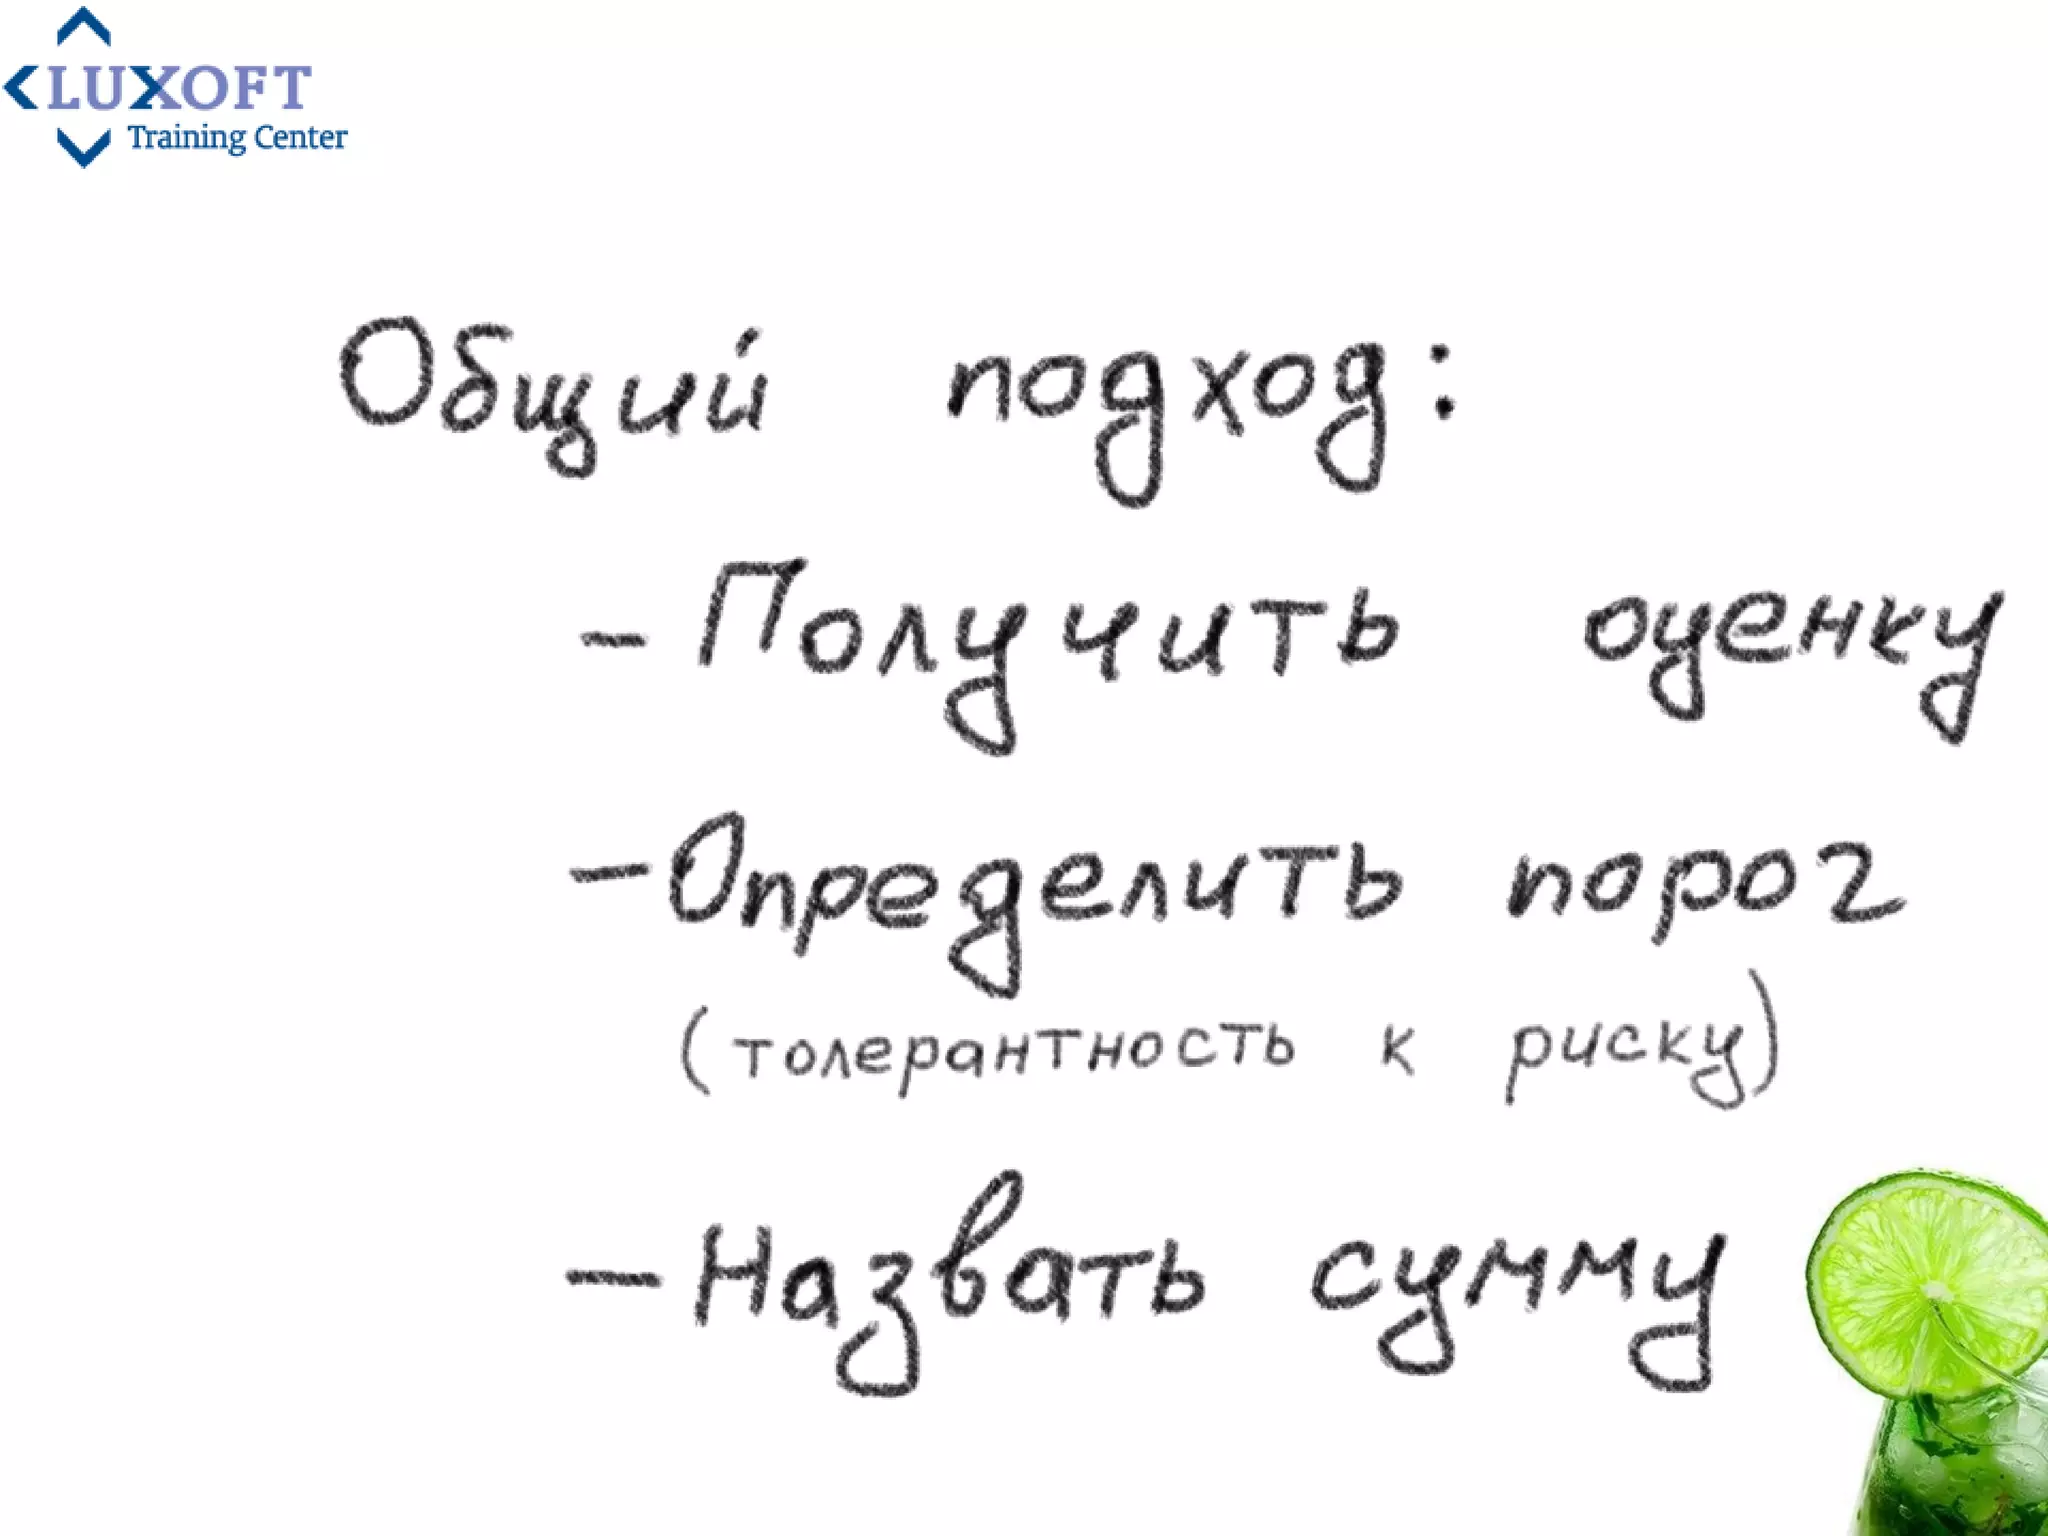 LUXOFT
Training Center
Общий подход:
- Получить оценку
- Определить порог
(толерантность к риску)
- Назвать сумму